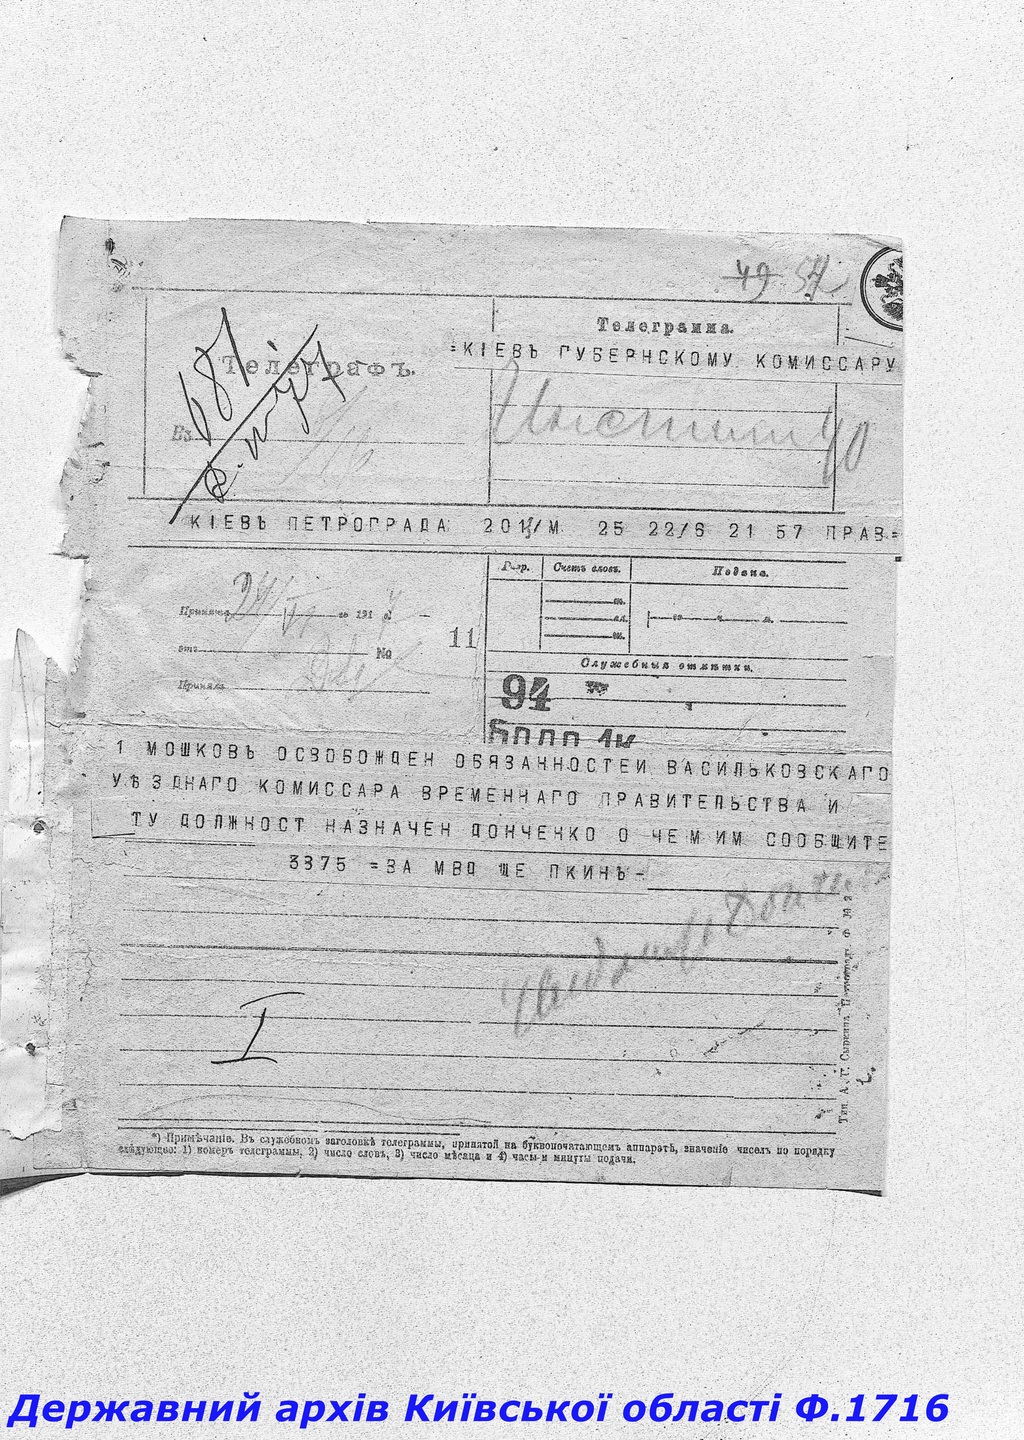 49 54
Телеграмма.
=КІЕВЪ ГУБЕРНСКОМУ КОМИССАРУ
Телеграфъ.
681
Въ
40
КІЕВЪ ПЕТРОГРАДА 201 /М 25 22/6 21 57 ПРАВ=
Разр. Счетъ словъ. Подана.
Принята 24/VI го 191 7
отъ № 11
Принялъ
Служебныя отмѣтки.
94
Бодо 1к
1 МОШКОВЪ ОСВОБОЖДЕН ОБЯЗАННОСТЕИ ВАСИЛЬКОВСКАГО
УѢЗДНАГО КОМИССАРА ВРЕМЕННАГО ПРАВИТЕЛЬСТВА И
ТУ ДОЛЖНОСТ НАЗНАЧЕН ДОНЧЕНКО О ЧЕМ ИМ СООБЩИТЕ
3375 =ЗА МВД ЩЕ ПКИНЪ-
I
Тип. А. П. Сыркина Петроградъ Ф. № 2
*) Примѣчаніе. Въ служебномъ заголовкѣ телеграммы, принятой на буквопечатающемъ аппаратѣ, значеніе чиселъ по порядку
слѣдующее: 1) номеръ телеграммы, 2) число словъ, 3) число мѣсяца и 4) часы и минуты подачи.
Державний архів Київської області Ф.1716